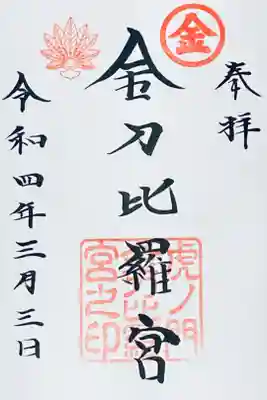 奉拝
金
金刀比羅宮
虎ノ門
宮之印
令和四年三月三日